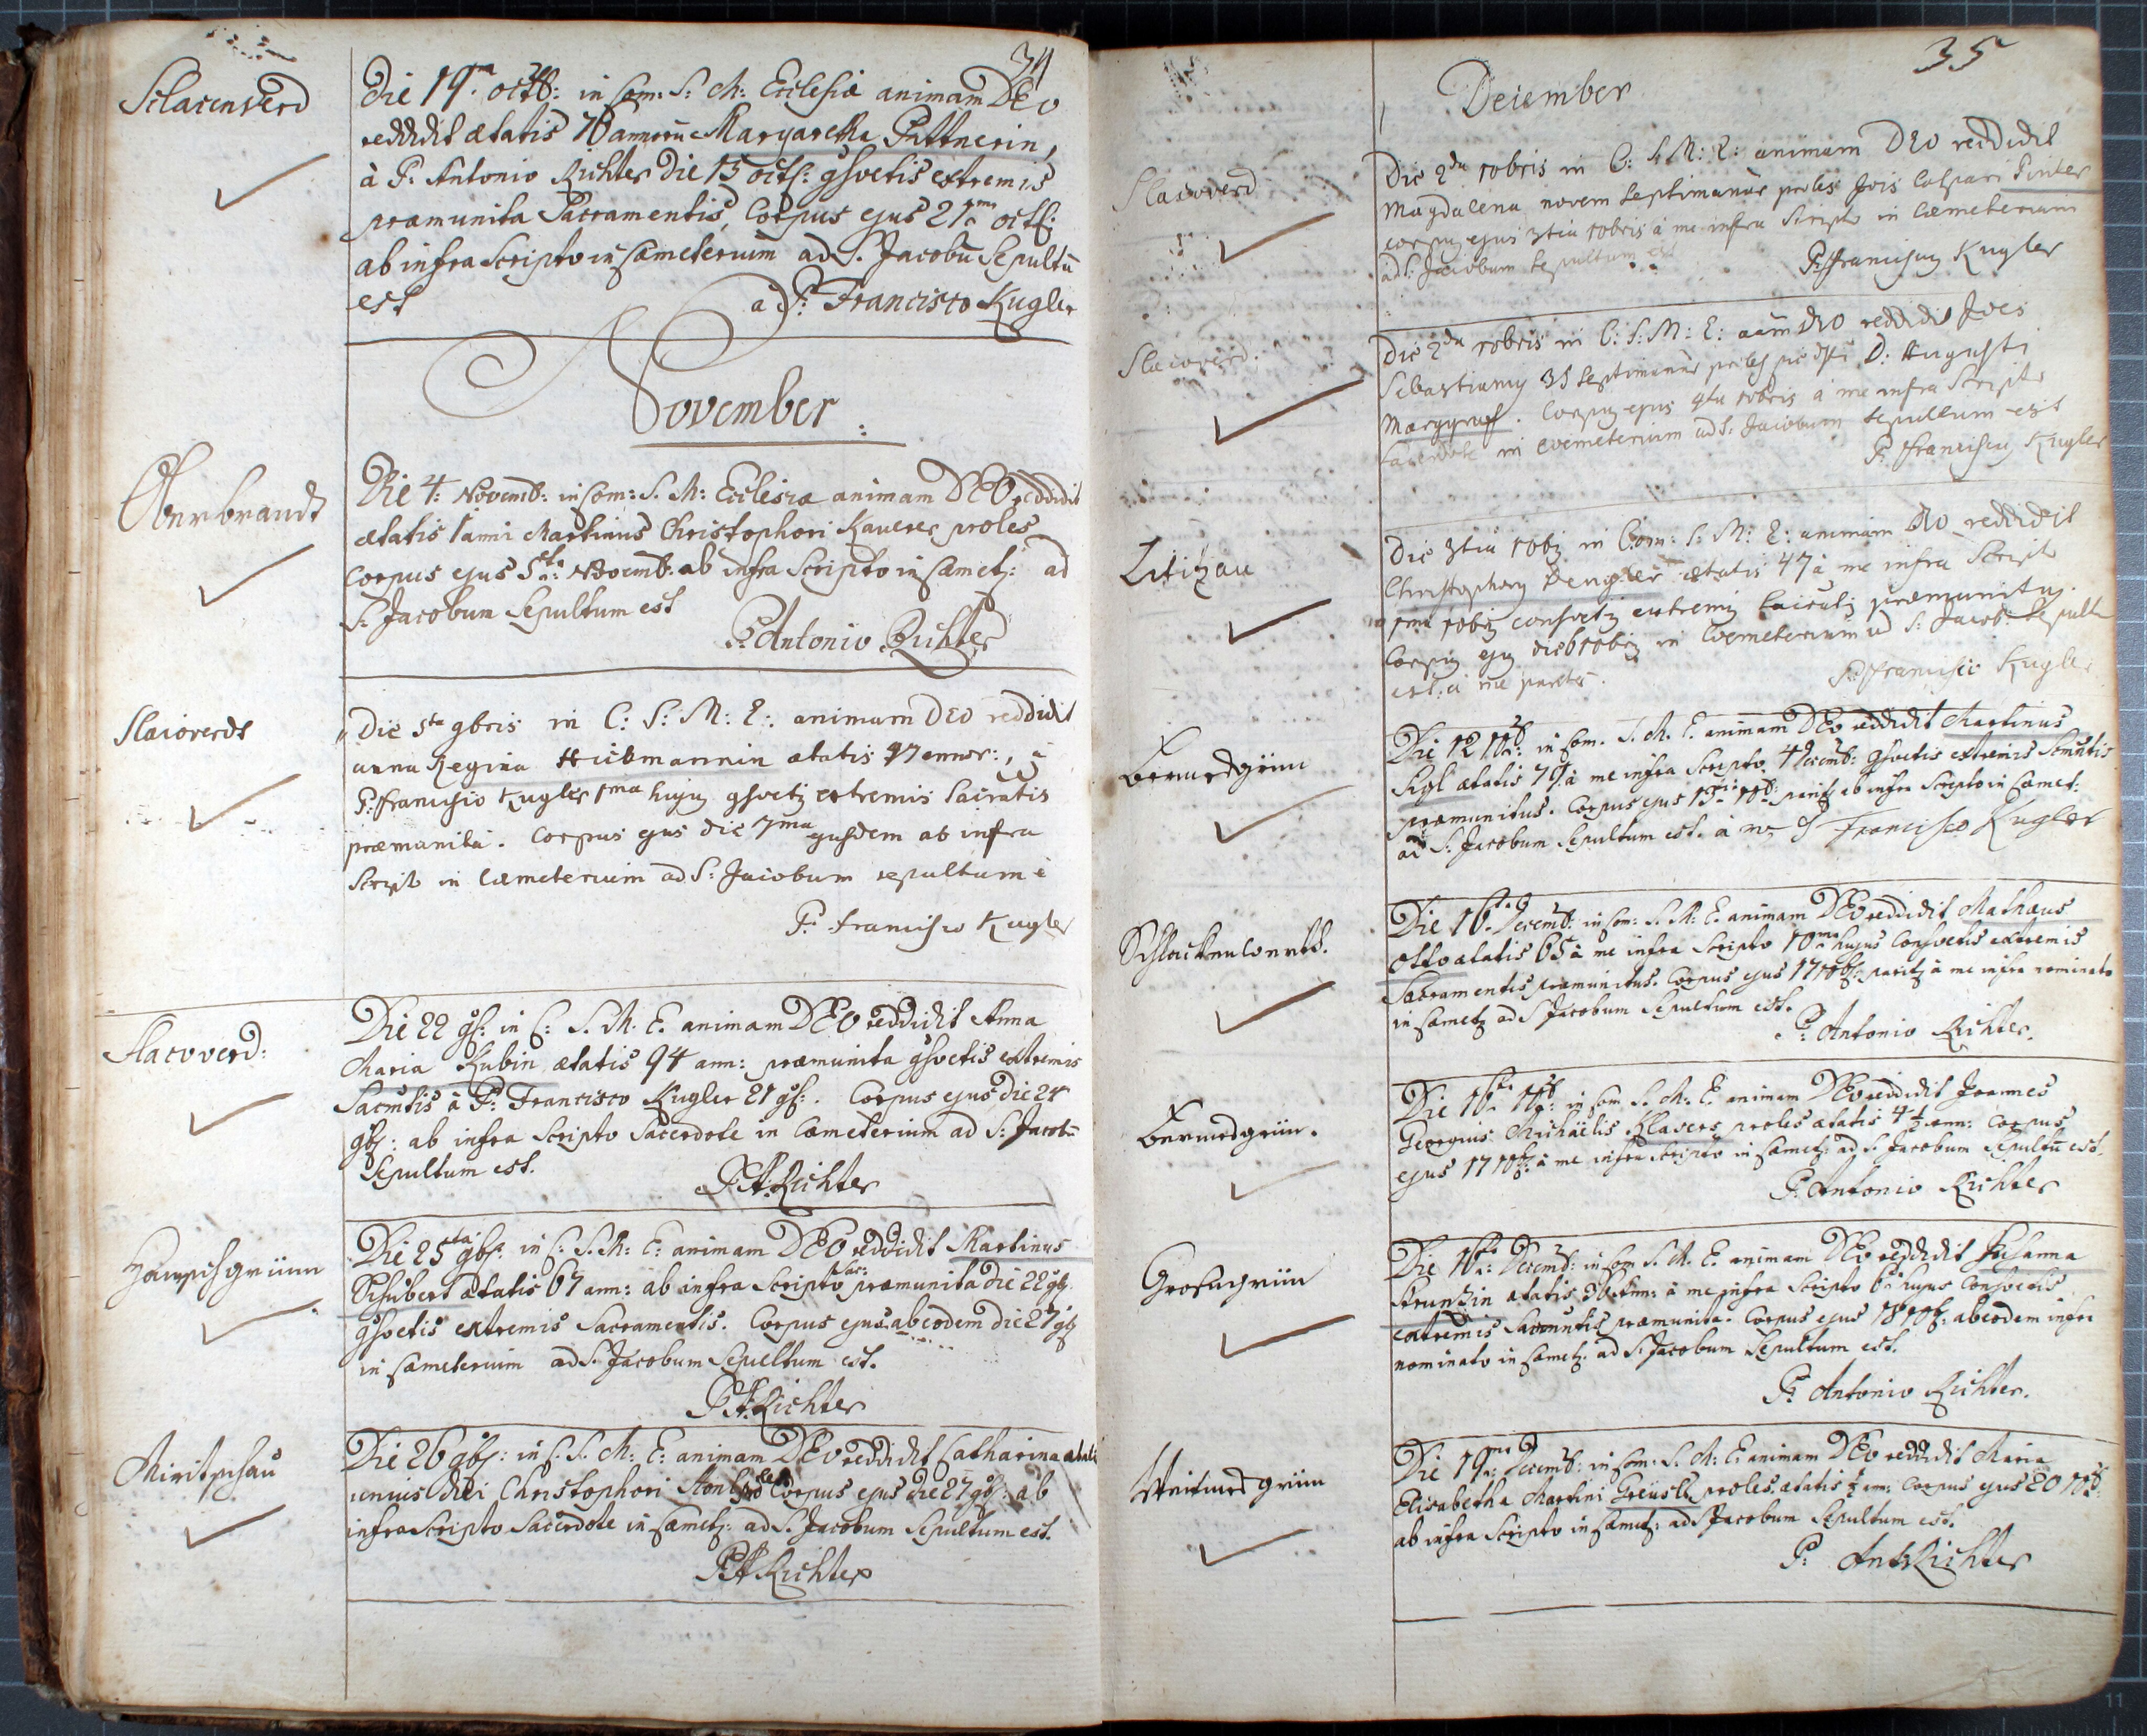 34
Sclacenverd
Die 19.ma octb: in Com: S: M: Ecclesiæ animam DEO
reddidit ætatis 70 annorũ Margaretha Püttnerin,
à P. Antonio Richter die 15 octb: gsvetis extremis
præmunita Sacramentis, Corpus ejus 21.ma octb:
ab infra scripto in Cæmeterium ad S. Jacobũ Sepultũ
est à P: Francisco Kugler
November :
Oberbrandt
Die 4: Novemb: in Com: S. M: Ecclesiæ animam DEO reddidit
ætatis 1 anni Martinus Christophori Kauerer proles
Corpus ejus 5.ta Novemb: ab infra Scripto in Cæmet: ad
S: Jacobum Sepultum est
P: Antonio Richter
Slacoverdt
Die 5ta 9bris in C: S: M: E: animam DEO reddidit
anna Regina Hübmannin ætatis 47 annor:, à
P: Francisco Kugler 1ma hujus gsvetis extremis Sacratis
præmunita. Corpus ejus die 7ma ejusdem ab infra
Script in Cæmeterium ad S: Jacobum sepultum ē
P: Francisco Kugler
Slacoverd:
Die 22 9b: in C: S. M. E. animam DEO reddidit Anna
Maria Rubin ætatis 94 ann: præmunita gsvetis extremis
Sacmtis à P: Francisco Kugler 21 9b:. Corpus ejus die 24
9b: ab infra Scripto Sacerdote in Cæmeterium ad S: Jacobũ
Sepultum est.
P. A. Richter
Honnesgrünn
Die 25ta 9b: in C: S. M: E: animam DEO reddidit Martinus
Schubert ætatis 67 ann: ab infra Scripto Sac: præmunita die 22 9b
gsvetis extremis Sacramentis. Corpus ejus ab eodem die 27 9b
in Cæmeterium ad S. Jacobum Sepultum est.
P. A. Richter
Miritschau
Die 26 9b: in C. S. M: E: animam DEO reddidit Catharina ætatis
unius diei Christophori Corpus ejus die 27 9b: ab
infra Scripto Sacerdote in Cæmet: ad S. Jacobum Sepultum est.
P. A. Richter
35
December
Slacoverd
Die 2da 10bris in C: S: M: E: animam DEO reddidit
Magdalena novem Septimanar proles Jois Caspari Pinter
corpus ejus 3tia 10bris à me infra Script in Cæmeterium
ad S: Jacobum Sepultum est
P: Franciscus Kugler
Slacoverd.
Die 2da 10bris in C: S: M: E: aĩm DEO reddidit Jois
Sebastianus 35 Septimanar proles D: Augusti
Marggraf. Corpus ejus 4ta 10bris à me infra Scripto
Sacerdote in Coemeterium ad S: Jacobum sepultum est
P: Franciscus Kugler
Litizau
Die 3tia 10b in Com: S: M: E: animam DEO reddidit
Christophorus Dengler ætatis 47 à me infra Script
1ma 10bris consvetis extremis præmunitus.
Corpus ejus die 6 10bris in Coemeterium ad S: Jacob: Sepult
est. à me
P: Francisco Kugler
Bermesgrün
Die 12 10b: in Com. S. M. E. animam DEO reddidit Martinus
Sigl ætatis 70 à me infra Scripto 4 Decemb: gsvetis extremis Scmntis
præmunitus. Corpus ejus 13 10b: ab infra Scripto in Cæmet:
ad S: Jacobum Sepultum est. à me P Francisco Kugler
Schlackenwerth.
Die 16.ta Decemb: in Com: S. M: E. animam DEO reddidit Mathæus
Otto ætatis 65 à me infra Scripto 10ma hujus Consvetis extremis
Sacramentis præmunitus. Corpus ejus 17 10b: à me infra nominato
in Cæmet ad S Jacobum Sepultum est.
P: Antonio Richter.
Bermesgrün.
Die 16.ta 10b: in Com S. M. E. animam DEO reddidit Joannes
Georgius Michaëlis Klavers proles ætatis 4 1/2 ann: Corpus
ejus 17 10b: à me infra Scripto in Cæmet: ad S. Jacobum Sepultũ est.
P: Antonio Richter
Grosengrün
Die 16.ta Decemb: in Com S. M. E. animam DEO reddidit Susanna
Strunzin ætatis 36 Ann: à me infra Scripto 6ta hujus Consvetis
extremis Sacmntis præmunita. Corpus ejus 18 10b: ab eodem infra
nominato in Cæmet: ad S. Jacobum Sepultum est.
P: Antonio Richter.
Weitmesgrün
Die 19.ma Decemb: in Com: S. M: E. animam DEO reddidit Maria
Elisabetha Martini proles. ætatis 1/2 ann: Corpus ejus 20 10b:
ab infra Scripto in Cæmet: ad S Jacobum Sepultum est.
P: Ant Richter